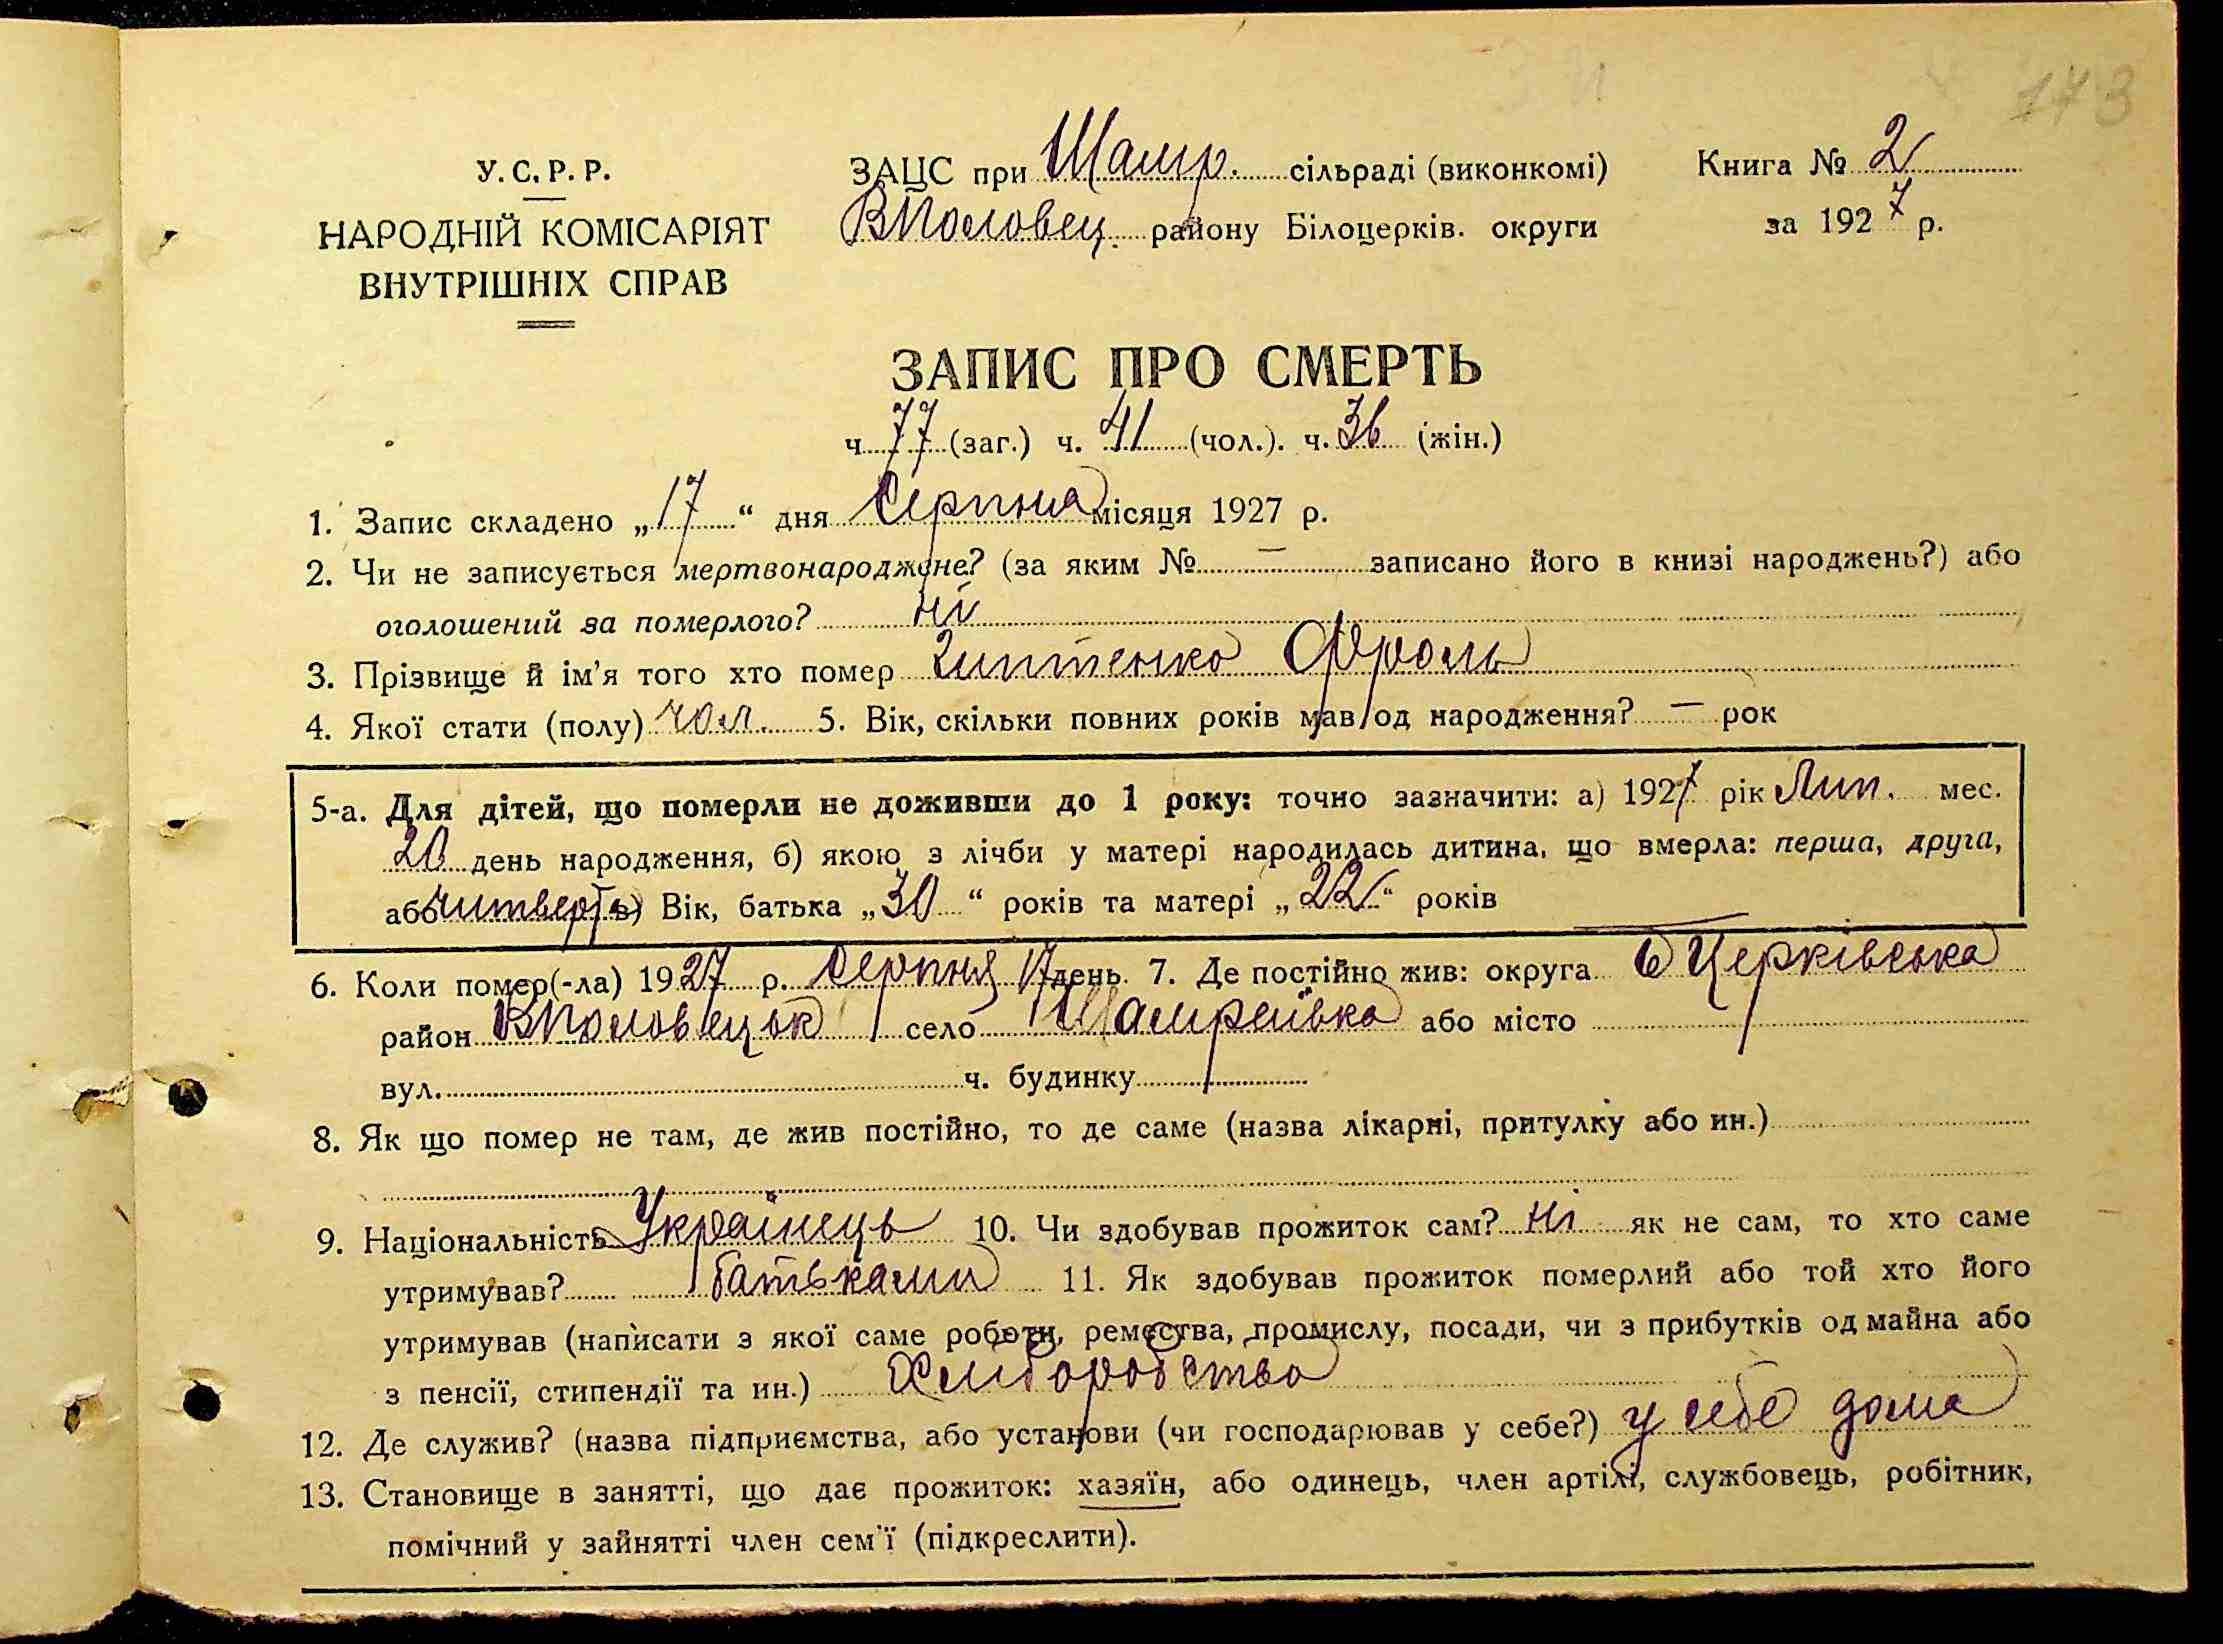 173
У. С. Р. Р.
НАРОДНІЙ КОМІСАРІЯТ
ВНУТРІШНІХ СПРАВ
ЗАЦС при Шамр. сільраді (виконкомі)
ВПоловец. району Білоцерків. округи
Книга № 2
за 1927 р.
ЗАПИС ПРО СМЕРТЬ
ч. 77 (заг.) ч. 41 (чол.). ч. 36 (жін.)
1. Запис складено „17“ дня Серпня місяця 1927 р.
2. Чи не записується мертвонароджене? (за яким № — записано його в книзі народжень?) або
оголошений за померлого? ні
3. Прізвище й ім’я того хто помер Фроль
4. Якої стати (полу) чол. 5. Вік, скільки повних років мав од народження? — рок
5-а. Для дітей, що померли не доживши до 1 року: точно зазначити: а) 1927 рік Лип. мес.
20 день народження, б) якою з лічби у матері народилась дитина, що вмерла: перша, друга,
або читверта в) Вік, батька „30“ років та матері „22“ років
6. Коли помер(-ла) 1927 р. Серпня 17 день 7. Де постійно жив: округа Б Церківська
район ВПоловецьк село Шамраївка або місто
вул. ч. будинку
8. Як що помер не там, де жив постійно, то де саме (назва лікарні, притулку або ин.)
9. Національність Українець 10. Чи здобував прожиток сам? ні як не сам, то хто саме
утримував? батьками 11. Як здобував прожиток померлий або той хто його
утримував (написати з якої саме роботи, ремества, промислу, посади, чи з прибутків од майна або
з пенсії, стипендії та ин.) Хліборобство
12. Де служив? (назва підприємства, або установи (чи господарював у себе?) у себе дома
13. Становище в занятті, що дає прожиток: хазяїн, або одинець, член артілі, службовець, робітник,
помічний у зайнятті член сем’ї (підкреслити).